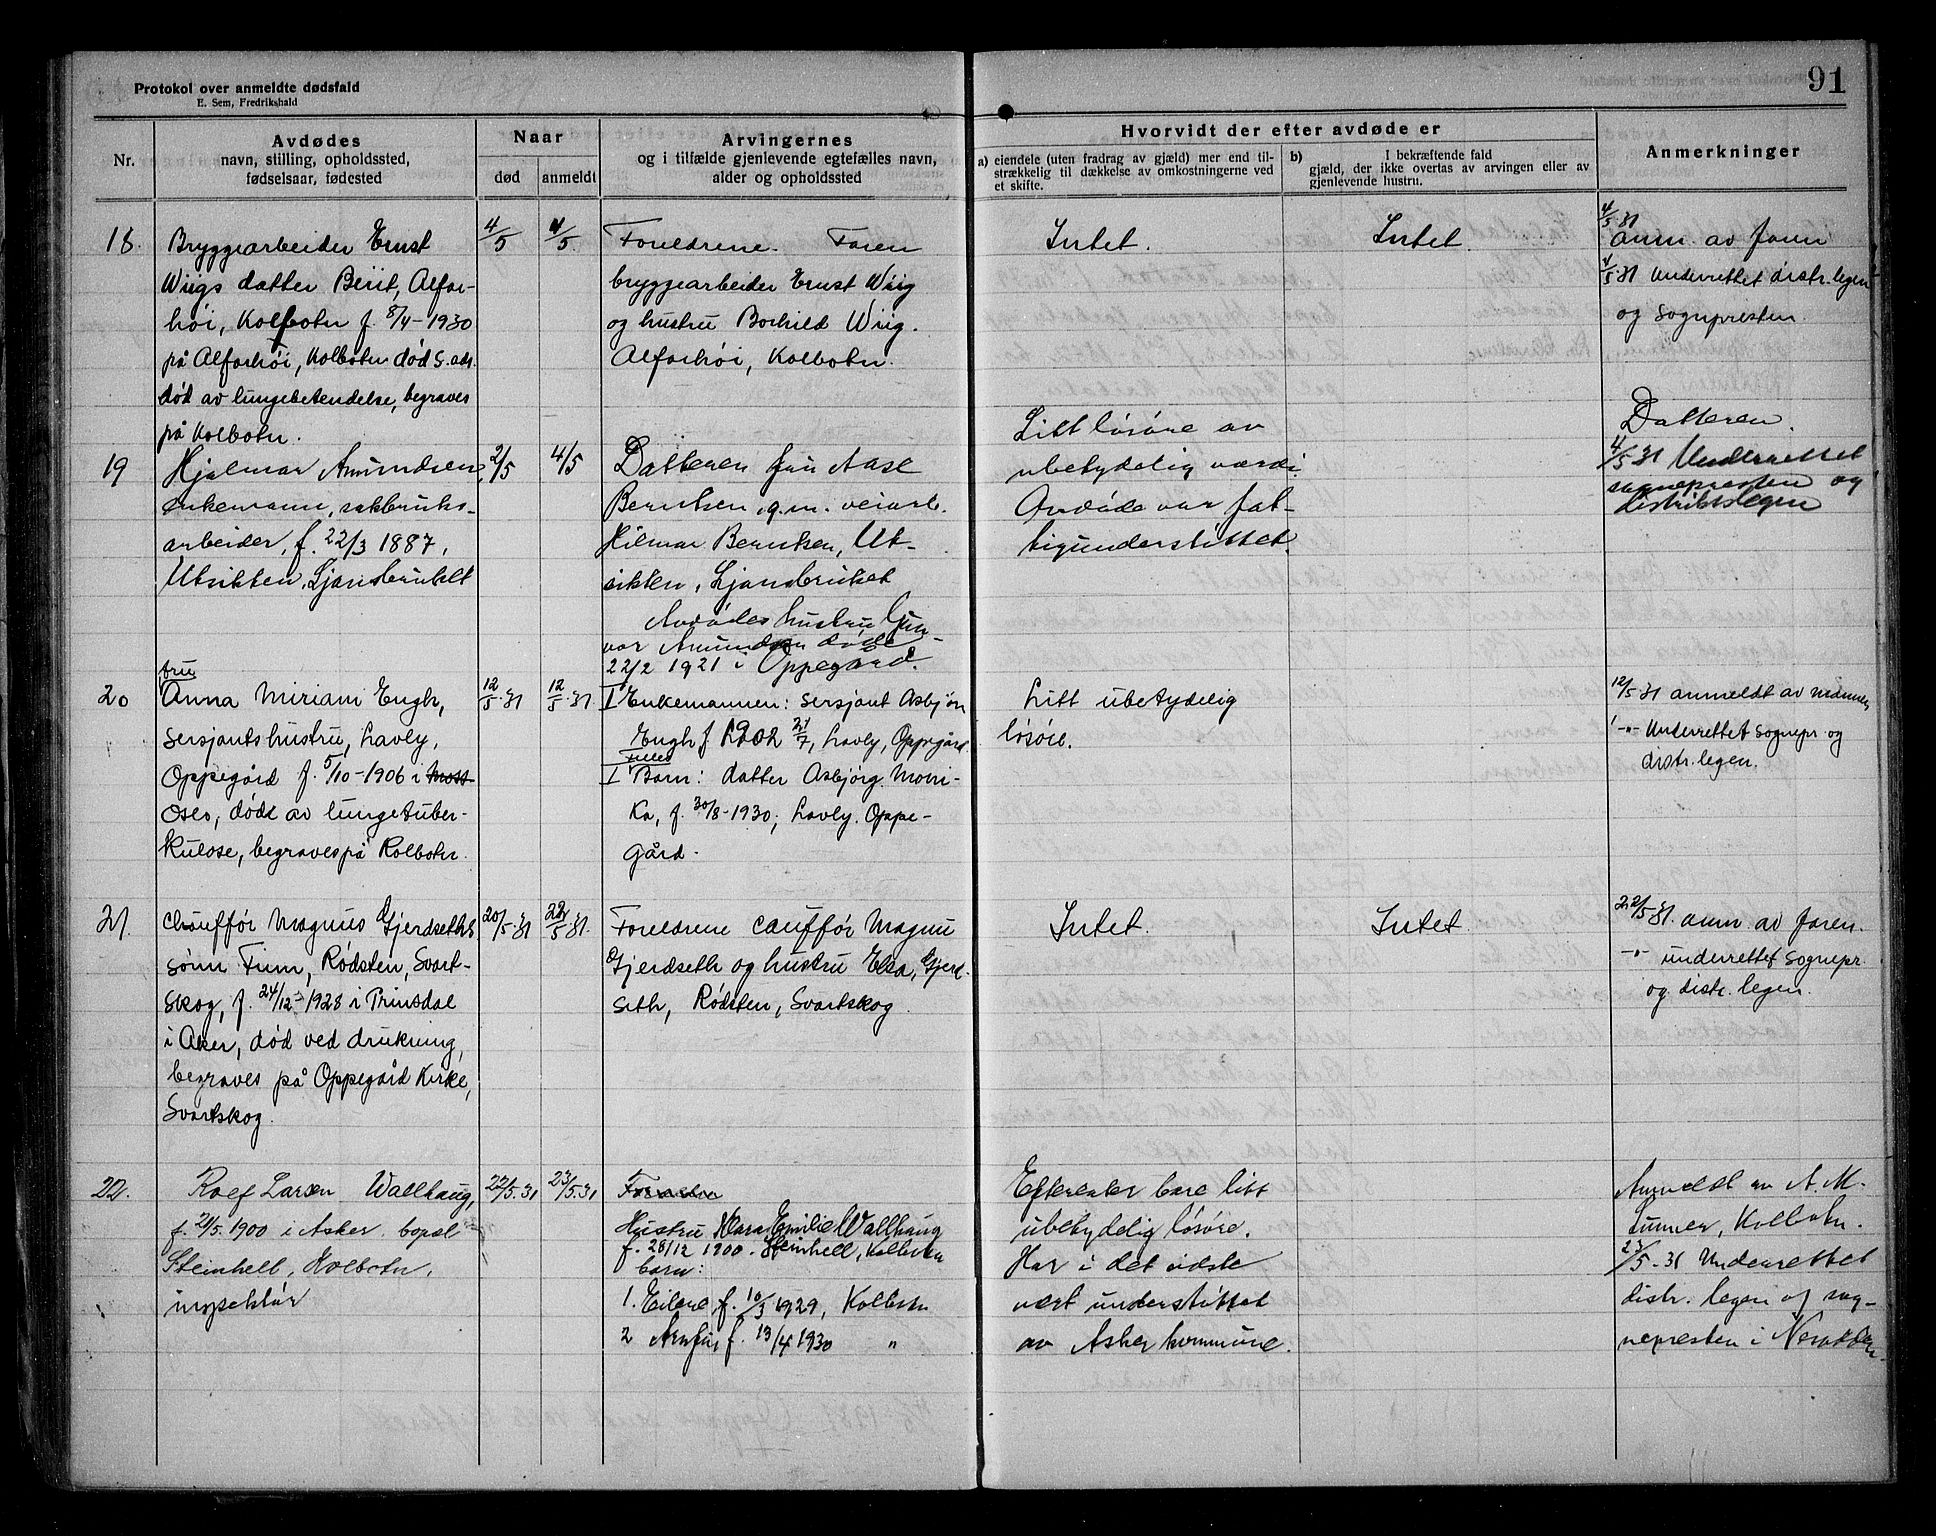 Protokol over anmeldte dødsfald
E. Sem, Fredrikshald
91
Nr.
Avdødes
navn, stilling, opholdssted,
fødselsaar, fødested
Naar
død
anmeldt
Arvingernes
og i tilfælde gjenlevende egtefælles navn,
alder og opholdssted
Hvorvidt der efter avdøde er
a) eiendele (uten fradrag av gjæld) mer end til-
strækkelig til dækkelse av omkostningerne ved
et skifte.
b) I bekræftende fald
gjæld, der ikke overtas av arvingen eller av
gjenlevende hustru.
Anmerkninger
18.
Bryggearbeider Ernst
Wiigs datter Berit, Alfar-
høi, Kolbotn f. 8/4-1930
på Alfarhøi, Kolbotn død s. ads.
død av lungebetendelse, begraves
på Kolbotn.
4/5
4/5
Foreldrene. Faren
bryggearbeider Ernst Wiig
og hustru Borhild Wiig.
Alfarhøi, Kolbotn.
Intet.
Intet.
4/5 31
anm. av faren
4/5.31 Underrettet distr.legen
og sognepresten.
19
Hjalmar Amundsen,
enkemann, sakbruks-
arbeider, f. 22/3 1887,
Utsikten, Ljansbruket
2/5
4/5
Datteren fru Aase
Berntsen, g.m. veiarb.
Hilmar Berntsen, Ut-
sikten, Ljansbruket
Avdødes hustru Gun-
vor Amundsen døde
22/2 1921 i Oppegaard.
Litt løsøre av
ubetydelig værdi.
Avdøde var fat-
tigunderstøttet.
Datteren.
4/5 31 Underrettet
sognepresten og
distriktslegen
20
fru
Anna Miriam Engh,
sersjants hustru, Lavly,
Oppegård f. 5/10-1906 i Moss
Oslo, døde av lungetuber-
kulose, begraves på Kolbotn.
12/5.31
12/5.31
I Enkemannen: sersjant Asbjørn
Engh f. 1902 21/7, Lavly, Oppegård.
Felles
I Barn: datter Asbjørg Moni-
ka, f. 30/8-1930, Lavly. Oppe-
gård.
Litt ubetydelig
løsøre.
12/5 31 anmeldt av mannen
-"- Underrettet sognepr og
distr.legen.
21.
Chauffør Magnus Gjerdseths
sønn Finn, Rødsten, Svart-
skog, f. 24/12-1928 i Prinsdal
i Aker, død ved drukning,
begraves på Oppegård Kirke,
Svartskog.
20/5.31
22/5.31.
Foreldrene cauffør Magnus
Gjerdseth og hustru Elsa, Gjerd-
seth, Rødsten, Svartskog.
Intet.
Intet.
22/5 31. anm. av faren.
-"- underrettet sognepr.
og distr.legen.
22.
Rolf Larsen Wallhaug,
f. 21/5. 1900 i Asker, bopel
Steinhell, Kolbotn,
inspektør
22/5.31
23/5.31
Hustru Klara Emilie Wallhaug
f. 28/12 1900. Steinhell, Kolbotn
barn:
1. Eilene, f. 10/3 1929, Kolbotn
2 Arnfus, f. 13/4 1930 "
Efterlater bare litt
ubetydelig løsøre.
Har i det sidste
vært understøttet
av Asker kommune.
Anmeldt av A. M.
Lunner, Kolbotn.
23/5-31 Underrettet
distr. legen og sog-
nepresten i Nesodden.